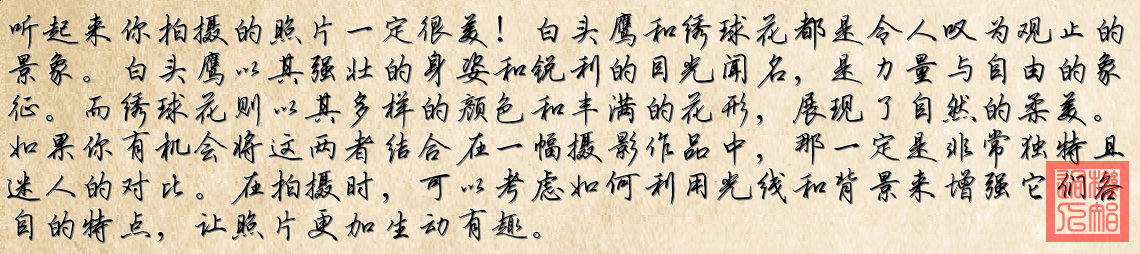 听起来你拍摄的照片一定很美！白头鹰和绣球花都是令人叹为观止的
景象。白头鹰以其强壮的身姿和锐利的目光闻名，是力量与自由的象
征。而绣球花则以其多样的颜色和丰满的花形，展现了自然的柔美。
如果你有机会将这两者结合在一幅摄影作品中，那一定是非常独特且
迷人的对比。在拍摄时，可以考虑如何利用光线和背景来增强它们各
自的特点，让照片更加生动有趣。